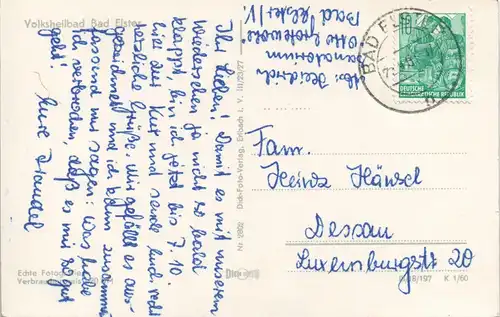 Volksheilbad Bad Elster
Ihr Lieben! Damit es mit unserem
Wiedersehen ja nicht so bald
klappt, bin ich jetzt bis 7.10.
hier zur Kur und sende Euch recht
herzliche Grüße. Mir gefällt es aus-
gezeichnet und ich kann zusammen-
fassend nur sagen: Was habe
ich verbrochen, daß es mir so gut
geht!
Eure
Abs.
Sanatorium
Otto Grotewohl
Bad Elster/V.
BAD ELSTER
10
DEUTSCHE
DEMOKRATISCHE REPUBLIK
Fam.
Heinz Hänsel
Dessau
Luxemburgstr. 20
Nr. 2802 Dick-Foto-Verlag, Erlbach i. V. III/23/27
Echte Fotografie
K 1/60